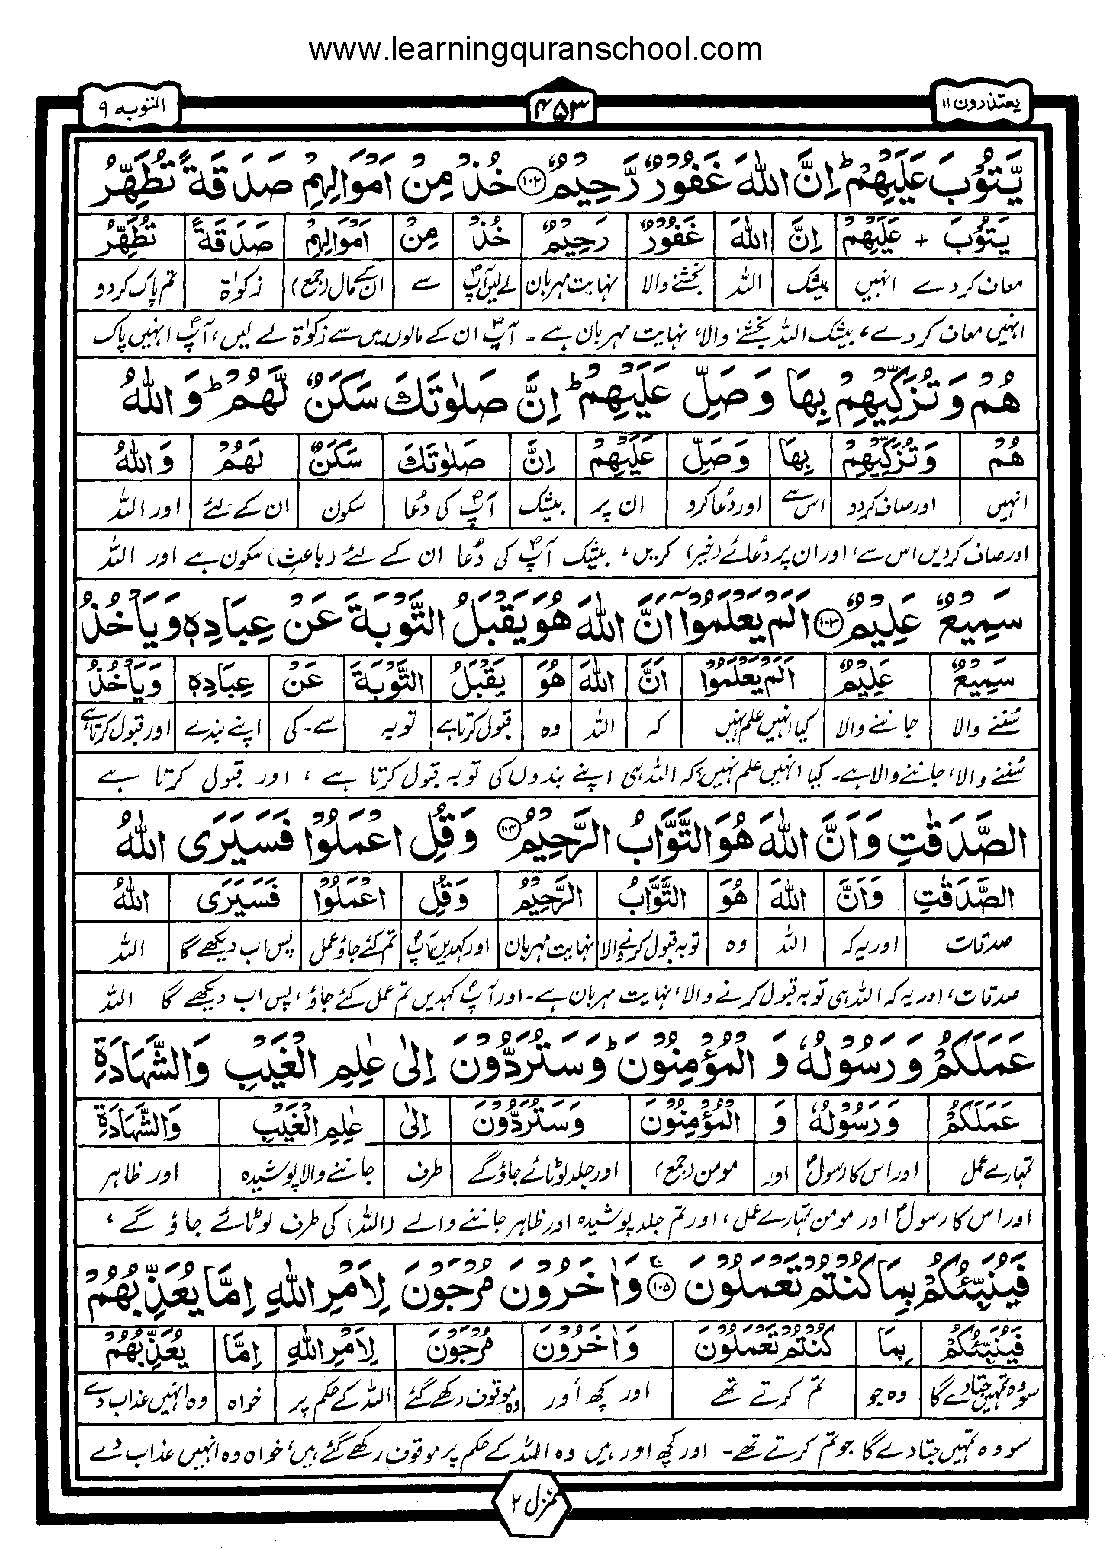 www.learningquranschool.com
یعتذرون ۱۱ ۴۵۳ التوبه ۹
يَّتُوْبَ عَلَيْهِمْ ؕ اِنَّ اللّٰهَ غَفُوْرٌ رَّحِيْمٌ ۝۱۰۲ خُذْ مِنْ اَمْوَالِهِمْ صَدَقَةً تُطَهِّرُ
يَتُوْبَ + عَلَيْهِمْ اِنَّ اللّٰهَ غَفُوْرٌ رَحِيْمٌ خُذْ مِنْ اَمْوَالِهِمْ صَدَقَةً تُطَهِّرُ
معاف کر دے انہیں بیشک اللہ بخشنے والا نہایت مہربان لے لیں آپؐ سے ان کے مال (جمع) زکوٰۃ تم پاک کردو
انہیں معاف کر دے، بیشک اللہ بخشنے والا، نہایت مہربان ہے۔ آپؐ ان کے مالوں میں سے زکوٰۃ لے لیں، آپؐ انہیں پاک
هُمْ وَتُزَكِّيْهِمْ بِهَا وَصَلِّ عَلَيْهِمْ ؕ اِنَّ صَلٰوتَكَ سَكَنٌ لَّهُمْ ؕ وَاللّٰهُ
هُمْ وَتُزَكِّيْهِمْ بِهَا وَصَلِّ عَلَيْهِمْ اِنَّ صَلٰوتَكَ سَكَنٌ لَهُمْ وَاللّٰهُ
انہیں اور صاف کردو اس سے اور دُعا کرو ان پر بیشک آپؐ کی دُعا سکون ان کے لئے اور اللہ
اور صاف کردیں اس سے، اور ان پر دُعائے (خیر) کریں، بیشک آپؐ کی دُعا ان کے لئے (باعثِ) سکون ہے اور اللہ
سَمِيْعٌ عَلِيْمٌ ۝۱۰۳ اَلَمْ يَعْلَمُوْٓا اَنَّ اللّٰهَ هُوَ يَقْبَلُ التَّوْبَةَ عَنْ عِبَادِهٖ وَيَاْخُذُ
سَمِيْعٌ عَلِيْمٌ اَلَمْ يَعْلَمُوْا اَنَّ اللّٰهَ هُوَ يَقْبَلُ التَّوْبَةَ عَنْ عِبَادِهٖ وَيَاْخُذُ
سُننے والا جاننے والا کیا انہیں علم نہیں کہ اللہ وہ قبول کرتا ہے توبہ سے۔کی اپنے بندے اور قبول کرتا ہے
سُننے والا، جاننے والا ہے۔ کیا انہیں علم نہیں کہ اللہ ہی اپنے بندوں کی توبہ قبول کرتا ہے، اور قبول کرتا ہے
الصَّدَقٰتِ وَاَنَّ اللّٰهَ هُوَ التَّوَّابُ الرَّحِيْمُ ۝۱۰۴ وَقُلِ اعْمَلُوْا فَسَيَرَى اللّٰهُ
الصَّدَقٰتِ وَاَنَّ اللّٰهَ هُوَ التَّوَّابُ الرَّحِيْمُ وَقُلِ اعْمَلُوْا فَسَيَرَى اللّٰهُ
صدقات اور یہ کہ اللہ وہ توبہ قبول کرنے والا نہایت مہربان اور کہدیں آپؐ تم کئے جاؤ عمل پس اب دیکھے گا اللہ
صدقات، اور یہ کہ اللہ ہی توبہ قبول کرنے والا، نہایت مہربان ہے۔ اور آپؐ کہدیں تم عمل کئے جاؤ، پس اب دیکھے گا اللہ
عَمَلَكُمْ وَرَسُوْلُهٗ وَ الْمُؤْمِنُوْنَ ؕ وَسَتُرَدُّوْنَ اِلٰى عٰلِمِ الْغَيْبِ وَالشَّهَادَةِ
عَمَلَكُمْ وَرَسُوْلُهٗ وَ الْمُؤْمِنُوْنَ وَسَتُرَدُّوْنَ اِلٰى عٰلِمِ الْغَيْبِ وَالشَّهَادَةِ
تمہارے عمل اور اس کا رسولؐ اور مومن (جمع) اور جلد لوٹائے جاؤ گے طرف جاننے والا پوشیدہ اور ظاہر
اور اس کا رسولؐ اور مومن تمہارے عمل، اور تم جلد پوشیدہ اور ظاہر جاننے والے (اللہ) کی طرف لوٹائے جاؤ گے،
فَيُنَبِّئُكُمْ بِمَا كُنْتُمْ تَعْمَلُوْنَ ۝۱۰۵ وَاٰخَرُوْنَ مُرْجَوْنَ لِاَمْرِ اللّٰهِ اِمَّا يُعَذِّبُهُمْ
فَيُنَبِّئُكُمْ بِمَا كُنْتُمْ تَعْمَلُوْنَ وَاٰخَرُوْنَ مُرْجَوْنَ لِاَمْرِ اللّٰهِ اِمَّا يُعَذِّبُهُمْ
سو وہ تمہیں جتا دے گا وہ جو تم کرتے تھے اور کچھ اور وہ موقوف رکھے گئے اللہ کے حکم پر خواہ وہ انہیں عذاب دے
سو وہ تمہیں جتا دے گا جو تم کرتے تھے۔ اور کچھ اور ہیں وہ اللہ کے حکم پر موقوف رکھے گئے ہیں، خواہ وہ انہیں عذاب دے
منزل ۲